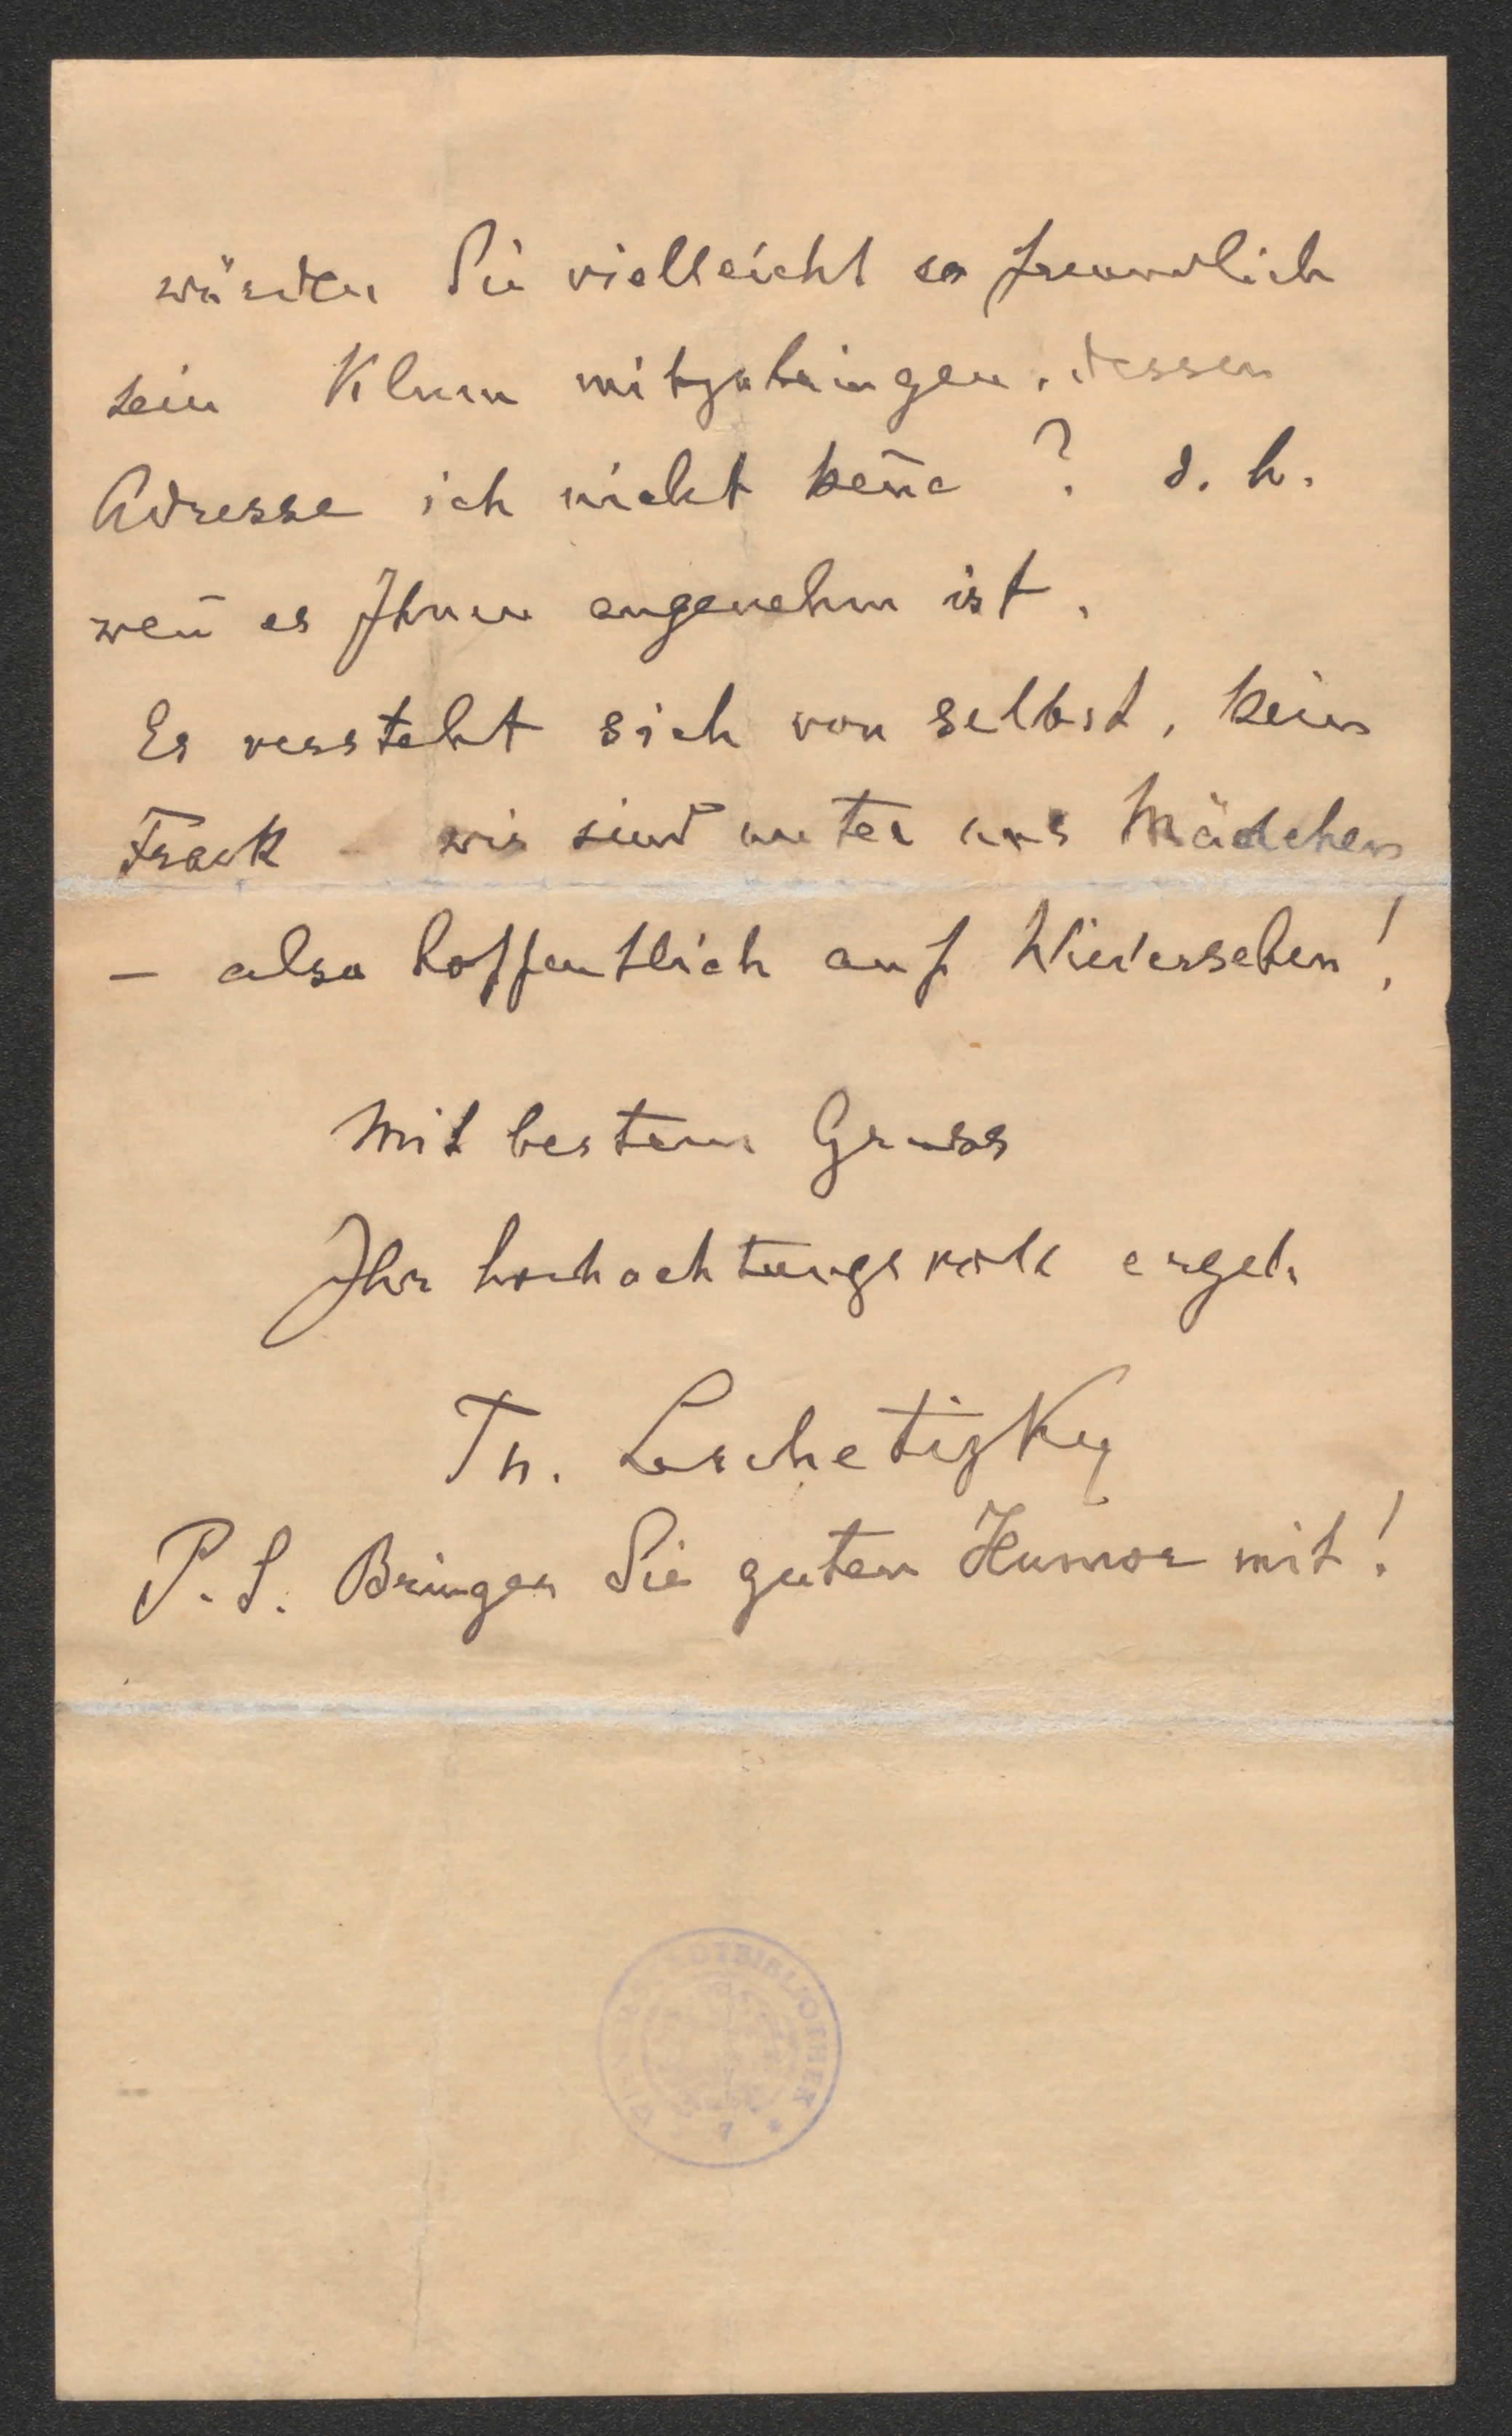 würden Sie vielleicht so freundlich
sein Klum mitzubringen, dessen
Adresse ich nicht keñe ? d. h.
weñ es Ihnen angenehm ist.
Es versteht sich von selbst, kein
Frack – wir sind unter uns Mädchen
– also hoffentlich auf Wiedersehen!
Mit bestem Gruss
Ihr hochachtungsvoll ergeb.
Th. Leschetizky
P. S. Bringen Sie guten Humor mit!